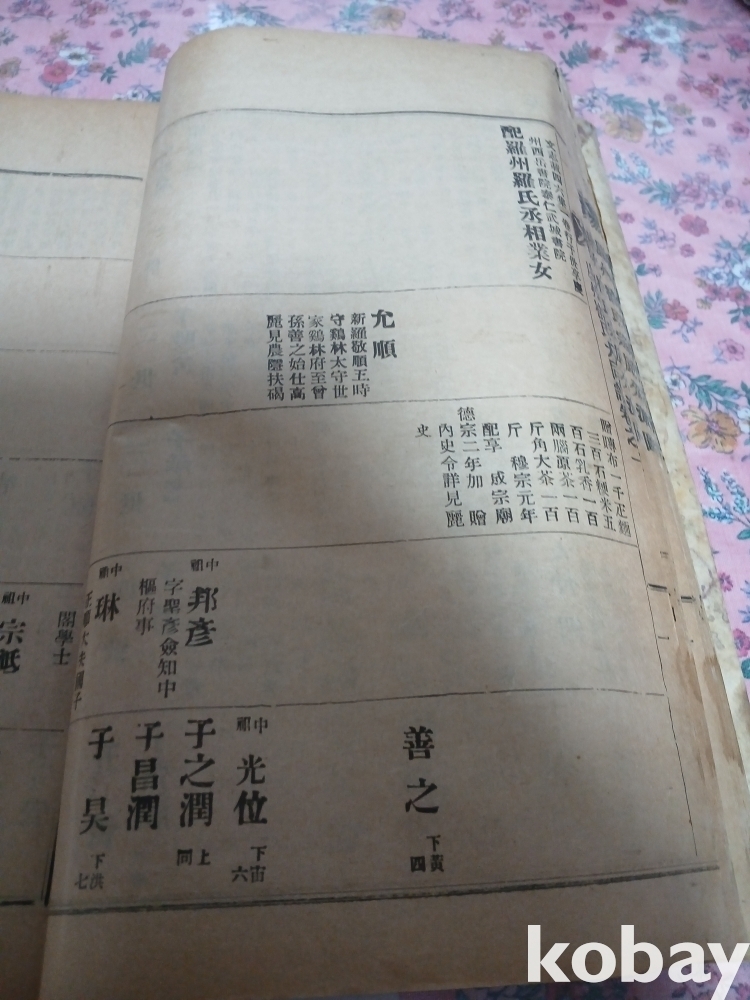 州西岳書院泰仁武城書院
配羅州羅氏丞相業女
允順
新羅敬順王時
守鷄林太守世
家鷄林府至曾
孫善之始仕高
麗見農隱扶碣
贈賻布一千疋麵
三百石粳米五
百石乳香一百
兩腦原茶一百
斤角大茶一百
斤 穆宗元年
配享 成宗廟
德宗二年加 贈
內史令詳見麗
史
中祖 邦彥
字聖彥僉知中
樞府事
中祖 琳
閣學士
中祖 宗
善之
下黃四
中祖 光位
下宙六
子之潤
上同
子昌潤
子昊
下洪七
kobay